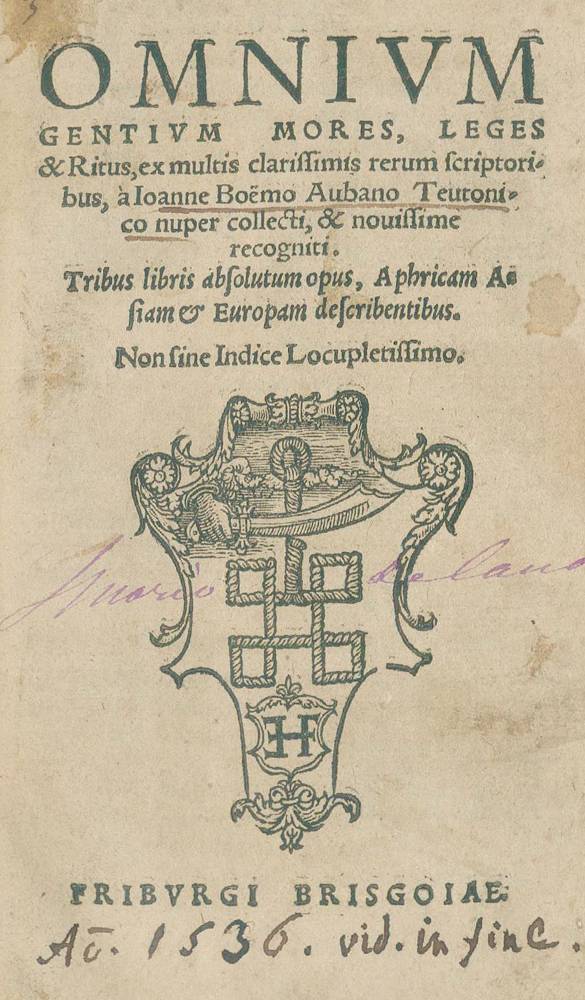 OMNIVM
GENTIVM MORES, LEGES
& Ritus, ex multis clarissimis rerum scriptori-
bus, à Ioanne Boëmo Aubano Teutoni-
co nuper collecti, & nouissime
recogniti.
Tribus libris absolutum opus, Aphricam A-
siam & Europam describentibus.
Non sine Indice Locupletissimo.
HF
FRIBVRGI BRISGOIAE.
Aō. 1536. vid. in fine.